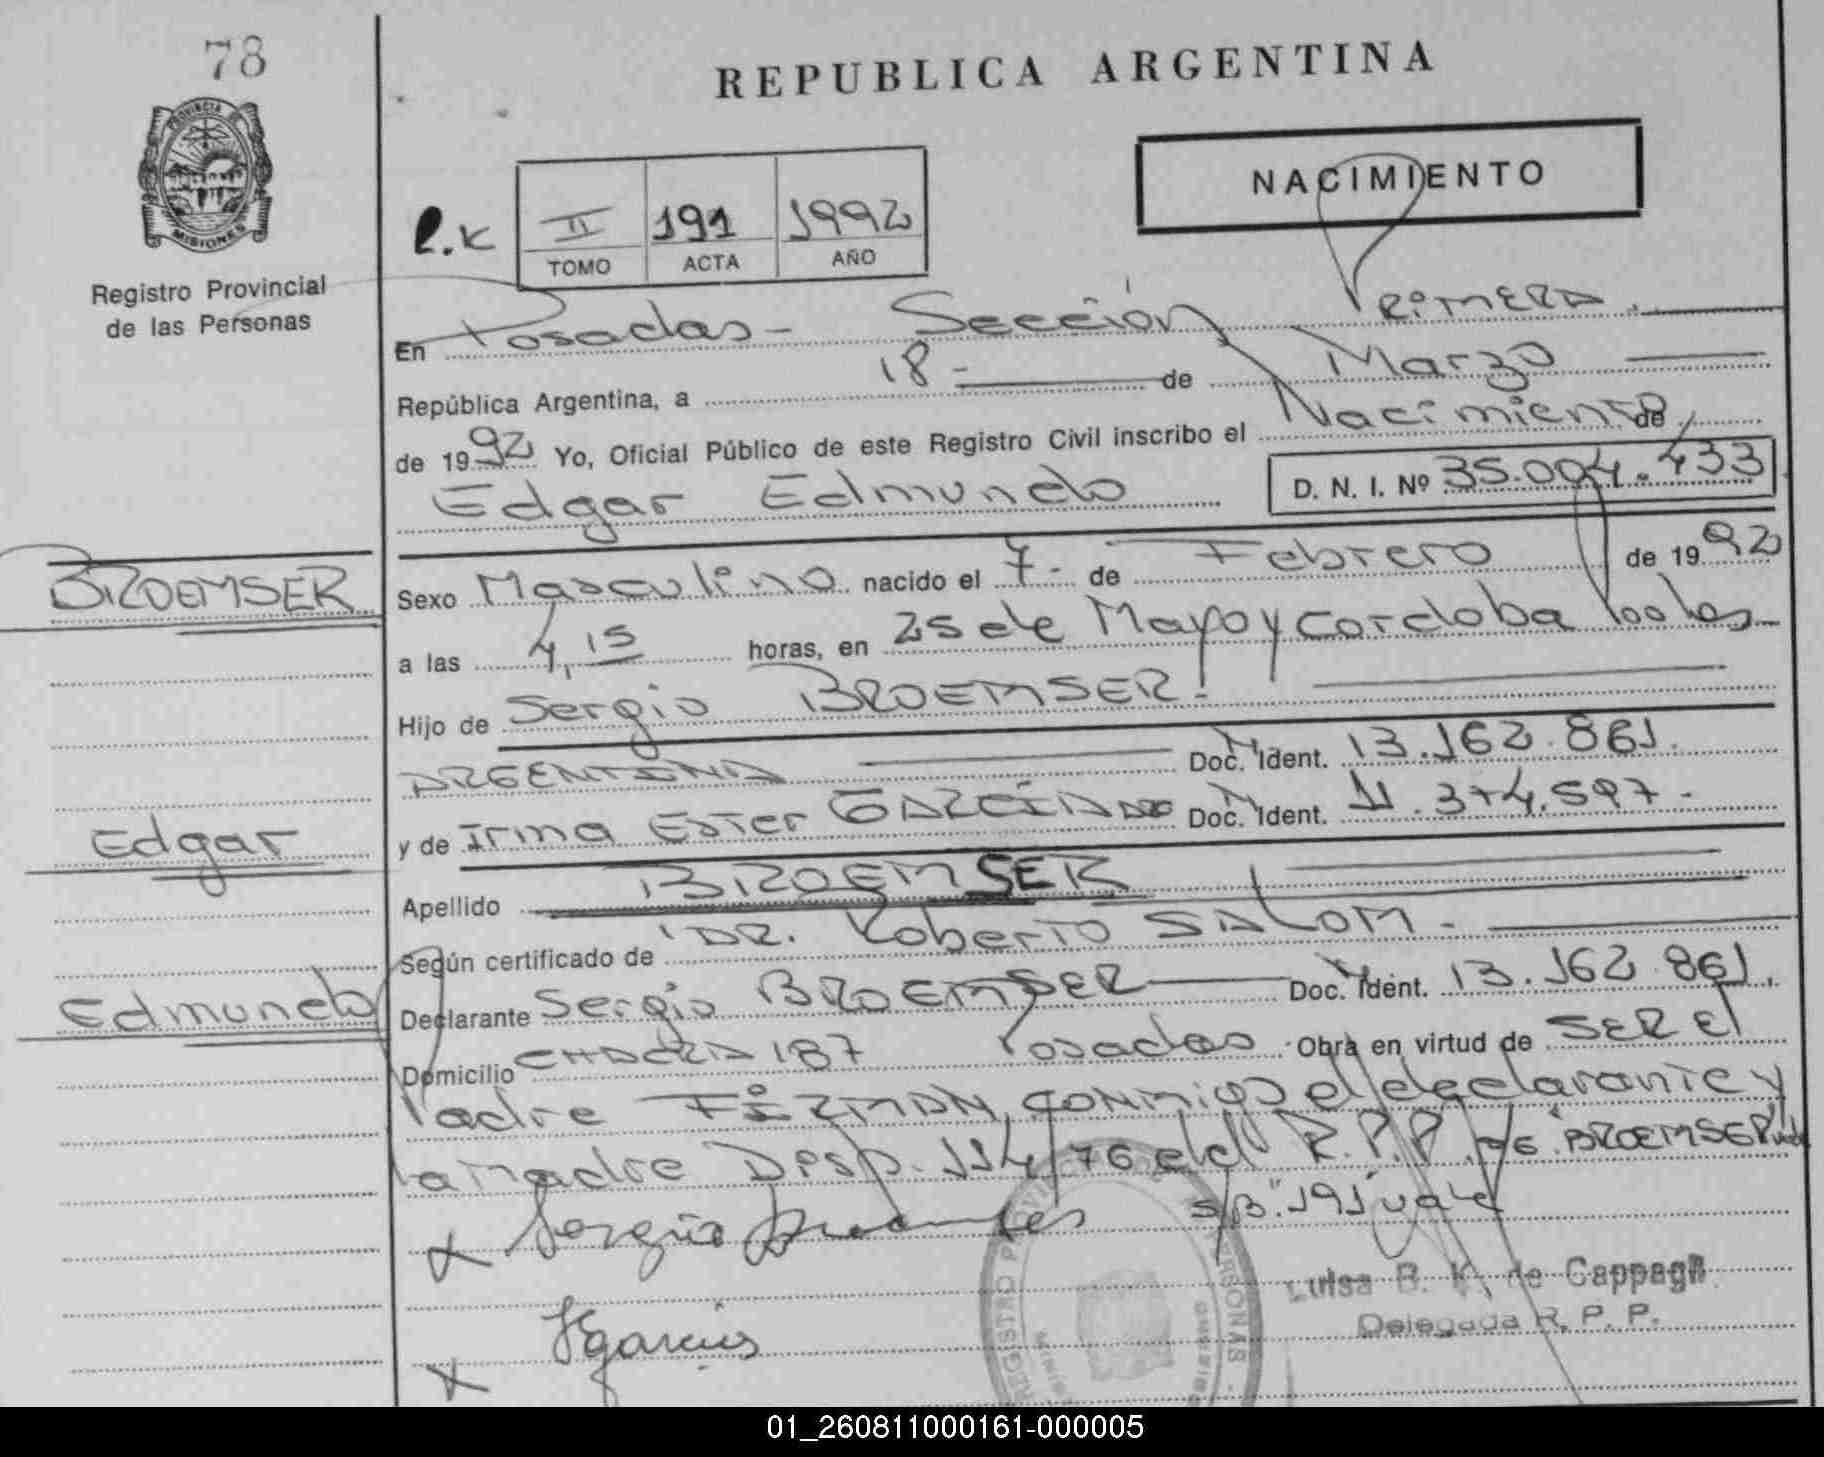 78
REPUBLICA ARGENTINA
PROVINCIA DE
MISIONES
Registro Provincial
de las Personas
NACIMIENTO
II 191 1992
TOMO ACTA AÑO
En Posadas - Sección Primera.
República Argentina, a 18 - de Marzo
de 1992 Yo, Oficial Público de este Registro Civil inscribo el Nacimiento de
Edgar Edmundo D. N. I. Nº 35.004.433
BROEMSER
Sexo Masculino nacido el 7 - de Febrero de 1992
a las 4,15 horas, en 25 de Mayo y Cordoba Posadas
Hijo de Sergio BROEMSER.
ARGENTINA Doc. Ident. 13.162.861.
y de Irma Ester GARCÍA Doc. Ident. 11.374.597 -
Edgar
Apellido BROEMSER
Según certificado de DR. Roberto SALOM -
Edmundo
Declarante Sergio BROEMSER Doc. Ident. 13.162.861.
Domicilio CHACRA 187 Posadas Obra en virtud de SER El
Padre FIRMAN conmigo el declarante y
la Madre Disp. 114/76 del R.P.P. BROEMSER vale
s/b. "191" vale
Luisa B. K. de Cappagli
Delegada R. P. P.
01_260811000161-000005